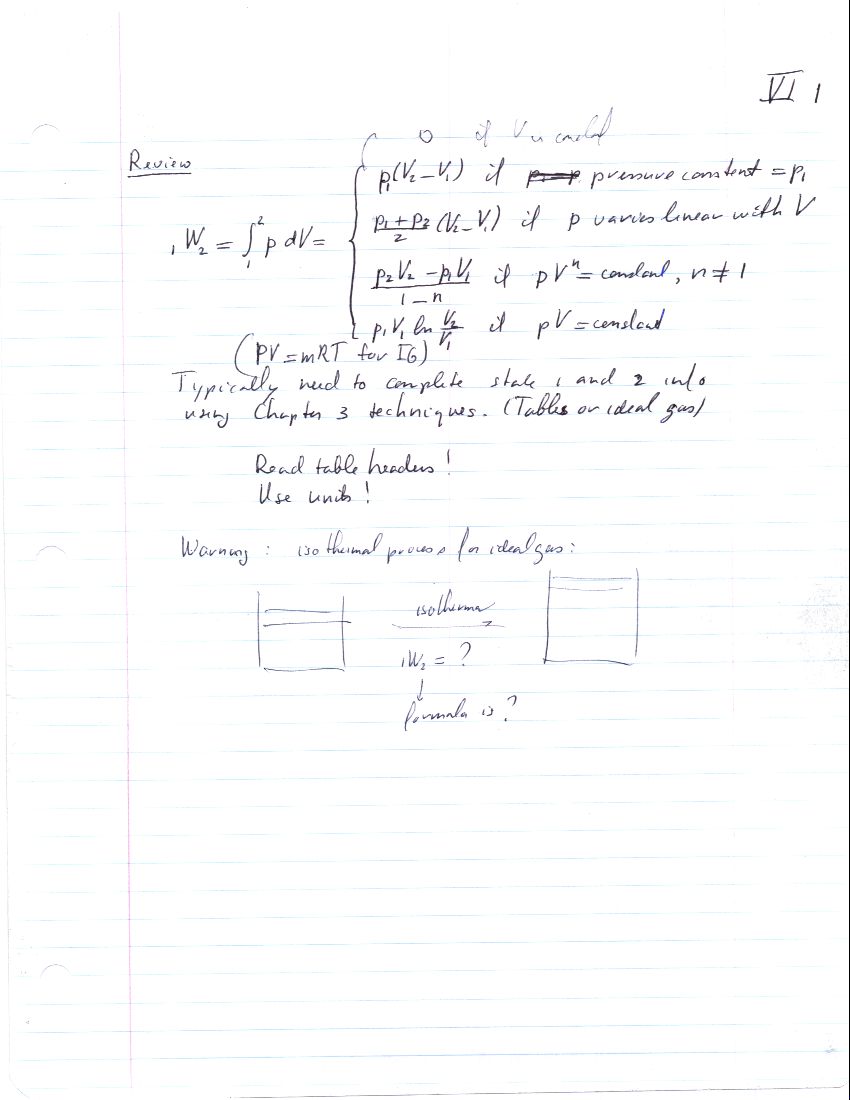 VI 1
0 if V is constant
Review
p₁(V₂ – V₁) if pressure constant = p₁
₁W₂ = ∫₁² p dV =
(p₁ + p₂)/2 (V₂ – V₁) if p varies linear with V
(p₂V₂ – p₁V₁)/(1 – n) if pVⁿ = constant, n ≠ 1
p₁V₁ ln V₂/V₁ if pV = constant
(PV = mRT for IG)
Typically need to complete state 1 and 2 info
using Chapter 3 techniques. (Tables or ideal gas)
Read table headers!
Use units!
Warning: isothermal process for ideal gas:
isothermal
₁W₂ = ?
↓
formula is?